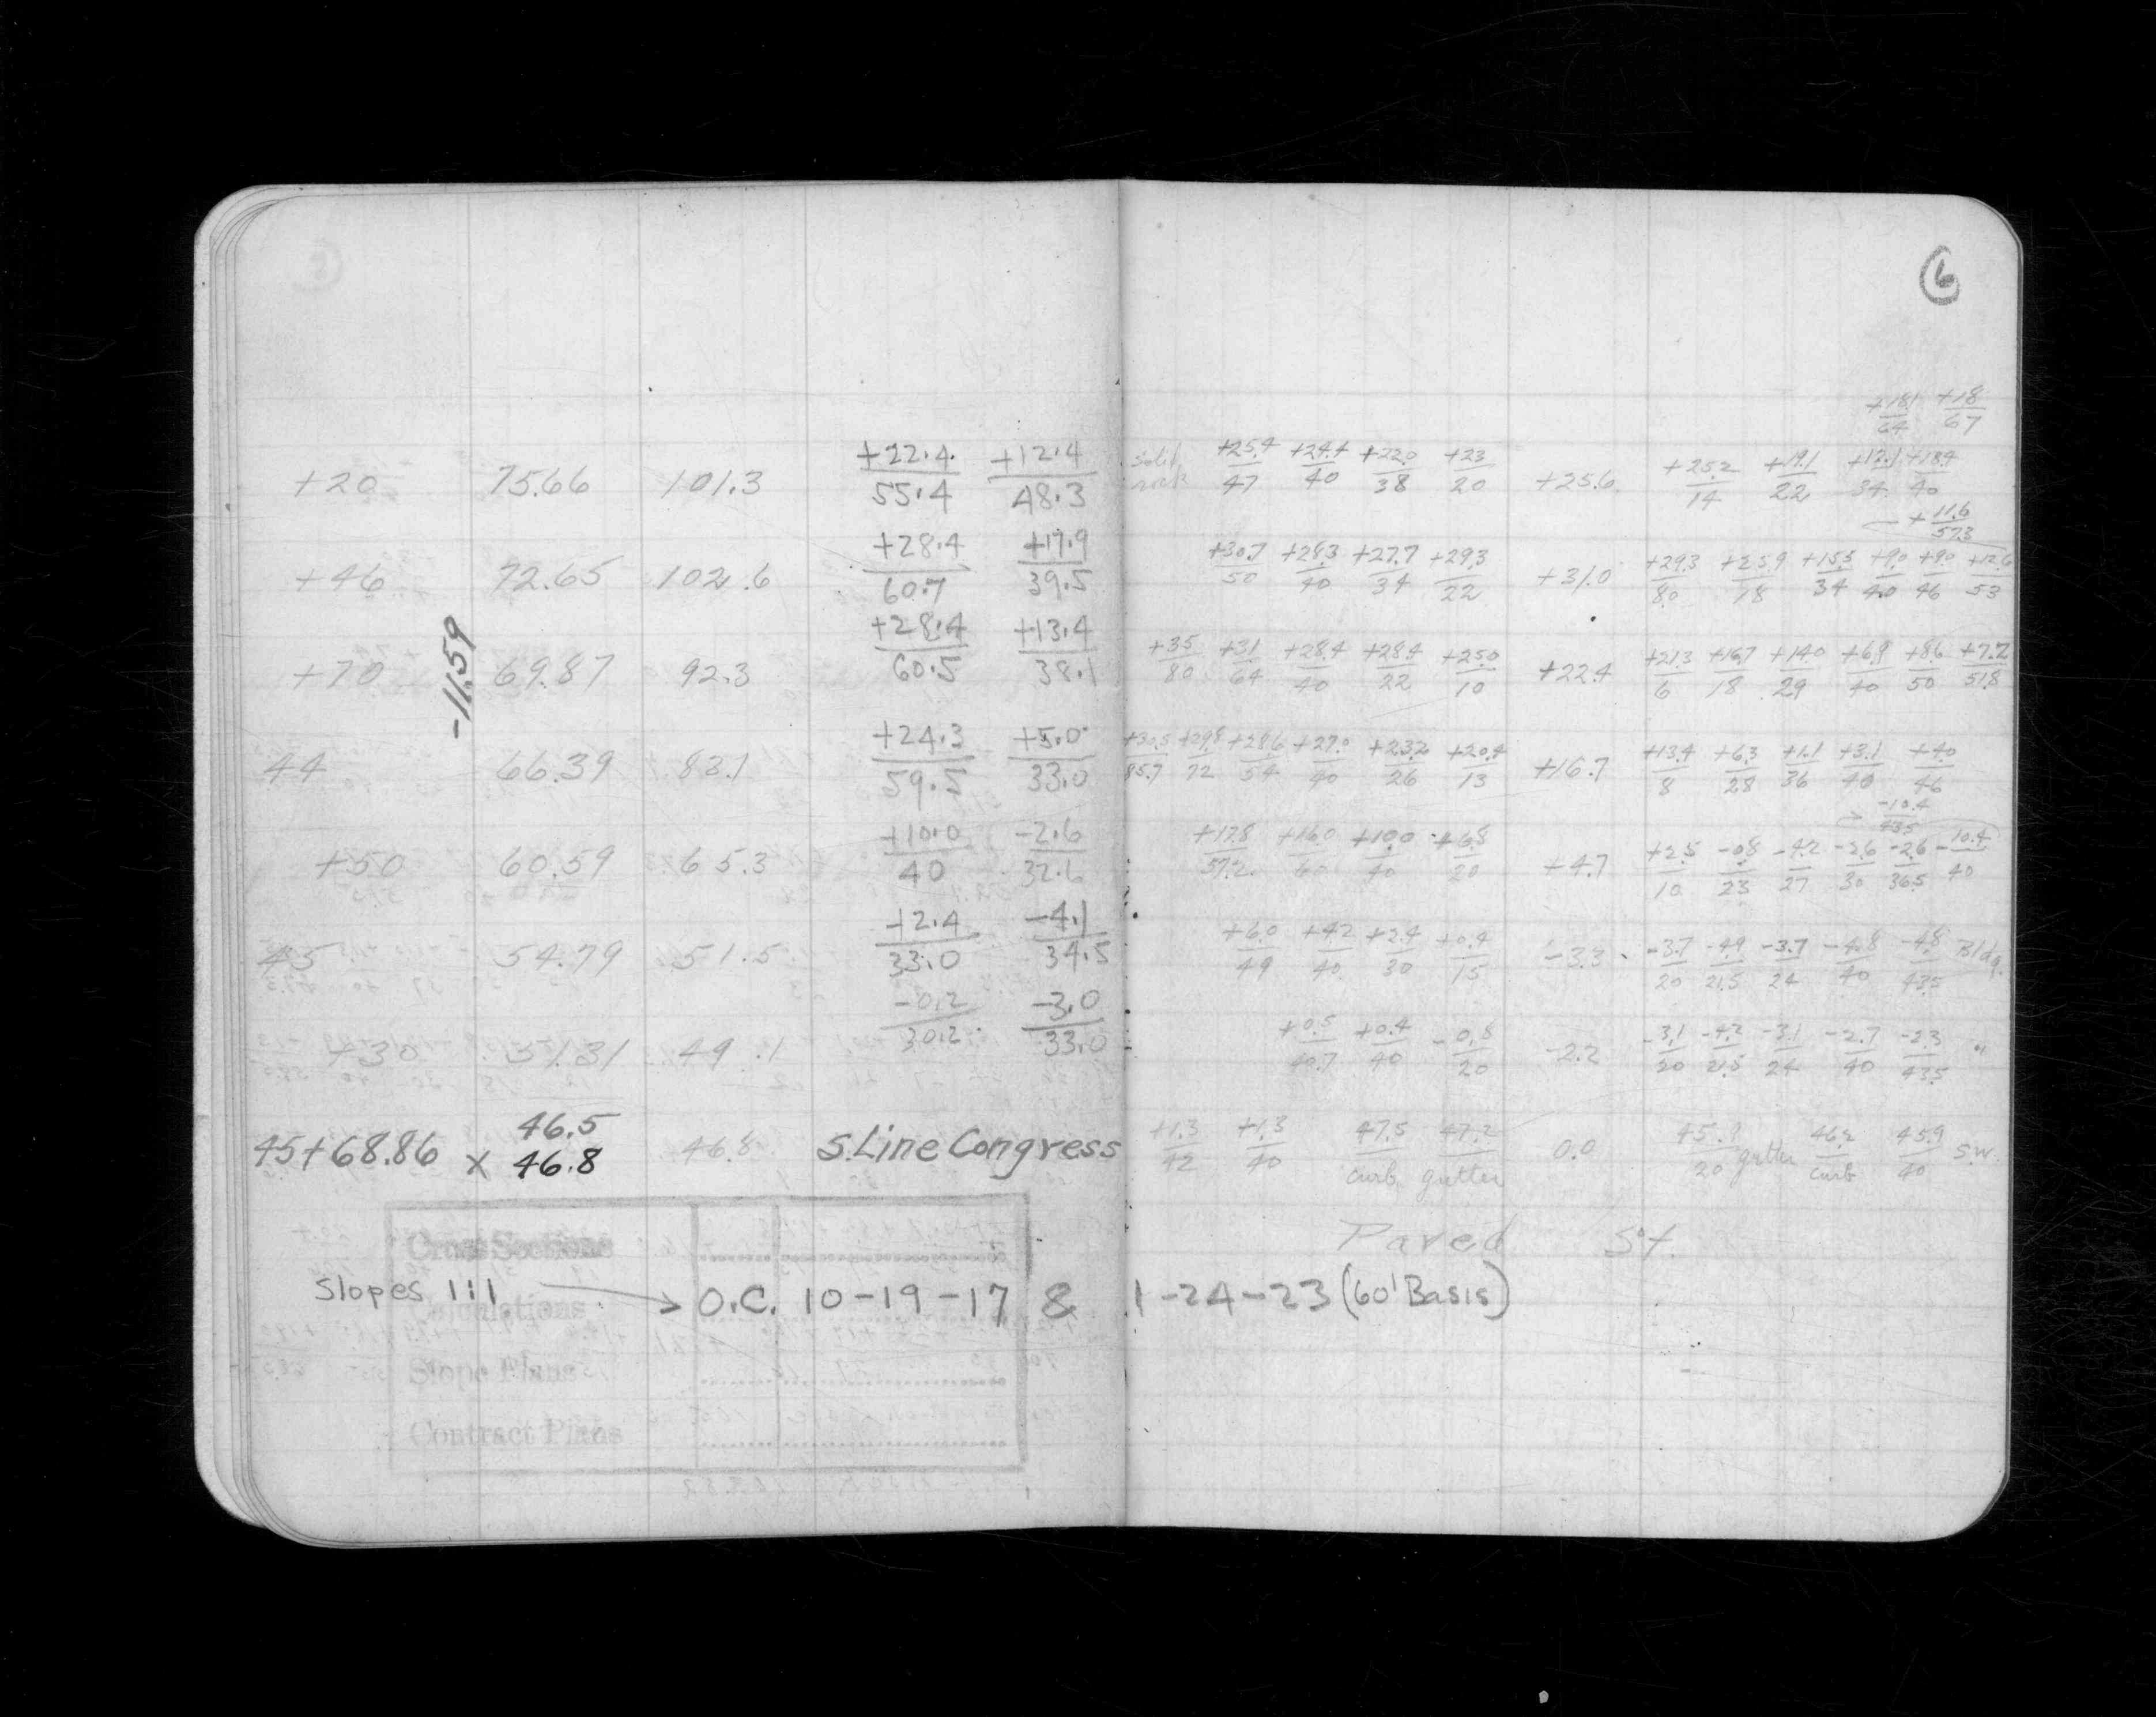 6
+18.1/64 +18/67
+20 75.66 101.3 +22.4/55.4 +12.4/48.3 solid rock +25.4/47 +24.4/40 +22.0/38 +23/20 +25.6 +25.2/14 +19.1/22 +12.1/34 +18.4/40
+11.6/57.3
+46 72.65 102.6 +28.4/60.7 +17.9/39.5 +30.7/50 +28.3/40 +27.7/34 +29.3/22 +31.0 +29.3/8.0 +25.9/18 +15.5/34 +9.0/40 +9.0/46 +12.6/53
-11.59
+70 69.87 92.3 +28.4/60.5 +13.4/38.1 +35/80 +31/64 +28.4/40 +28.4/22 +25.0/10 +22.4 +21.3/6 +16.7/18 +14.0/29 +6.9/40 +8.6/50 +7.2/51.8
44 66.39 83.1 +24.3/59.5 +5.0/33.0 +30.5/85.7 +29.8/72 +28.6/54 +27.0/40 +23.2/26 +20.4/13 +16.7 +13.4/8 +6.3/28 +1.1/36 +3.1/40 +4.0/46
-10.4/43.5
+50 60.59 65.3 +10.0/40 -2.6/32.6 +17.8/57.2 +16.0/60 +10.0/40 +6.8/20 +4.7 +2.5/10 -0.8/23 -4.2/27 -2.6/30 -2.6/36.5 -10.4/40
45 54.79 51.5 +2.4/33.0 -4.1/34.5 +6.0/49 +4.2/40 +2.4/30 +0.4/15 -3.3 -3.7/20 -4.9/21.5 -3.7/24 -4.8/40 -4.8/43.5 Bldg.
+30 51.31 49.1 -0.2/30.2 -3.0/33.0 +0.5/40.7 +0.4/40 -0.8/20 -2.2 -3.1/20 -4.2/21.5 -3.1/24 -2.7/40 -2.3/43.5 "
46.5
45+68.86 x 46.8 46.8 S. Line Congress +1.3/42 +1.3/40 47.5/curb 47.2/gutter 0.0 45.9/20 gutter 46.2/curb 45.9/40 S.W.
Paved St.
Cross Sections
Slopes 1:1 → O.C. 10-19-17 & 1-24-23 (60' Basis)
Calculations
Slope Plans
Contract Plans